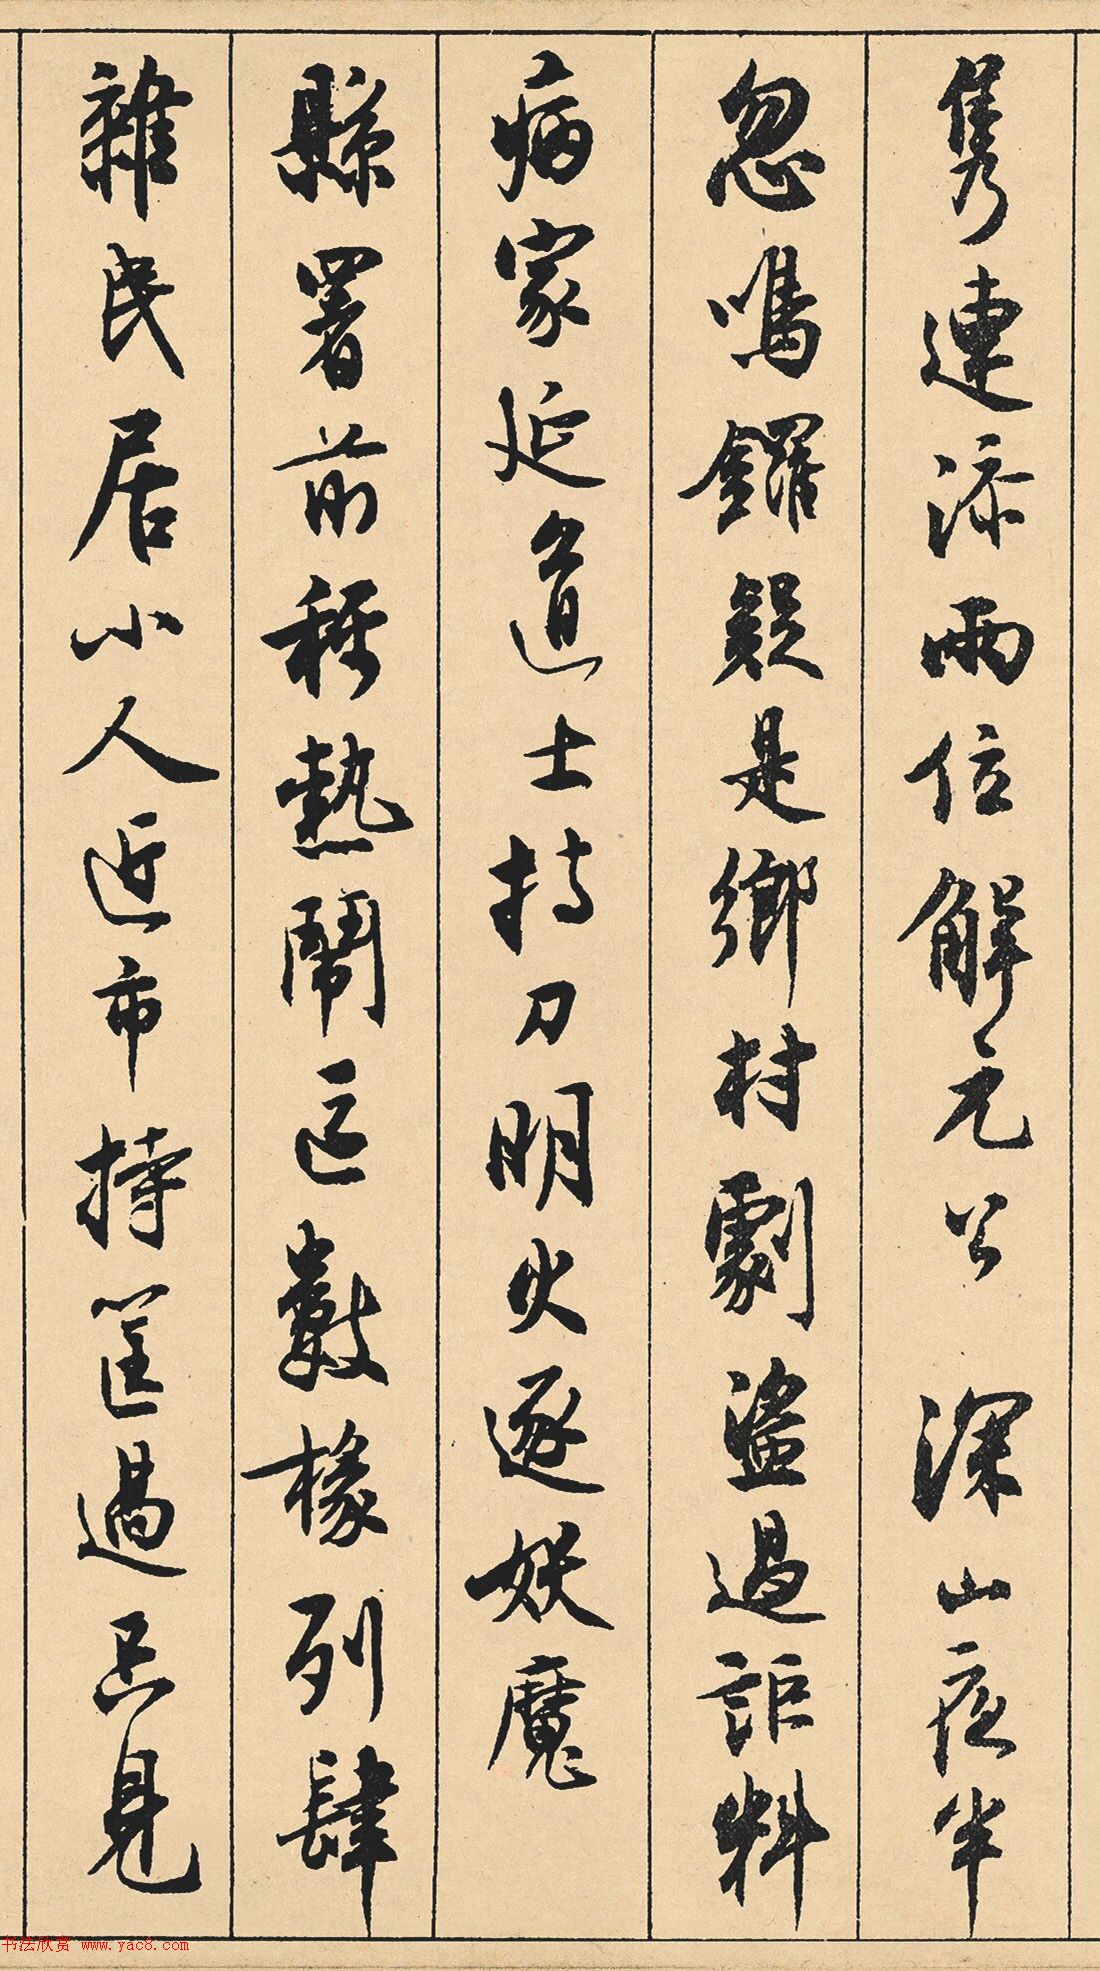 隽連添兩位解元公 深山夜半
忽鳴鑼疑是鄉村劇盜過詎料
病家延道士持刀明火逐妖魔
縣署前稱熱鬧區數椽列肆
雜民居小人近市持筐過只見
书法欣赏 www.yac8.com